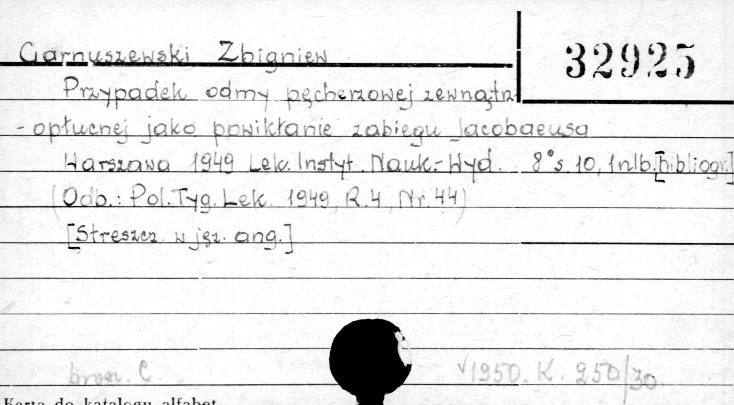 Garnuszewski Zbigniew
32925
Przypadek odmy pęcherzowej zewnątrz
- opłucnej jako powikłanie zabiegu Jacobaeusa
Warszawa 1949 Lek. Instyt. Nauk.-Wyd. 8° s. 10, 1 nlb. [bibliogr.]
(Odb.: Pol. Tyg. Lek. 1949, R. 4, Nr. 44)
[Streszcz. w jęz. ang.]
brosz. C. 1950. K. 250/30.
Karta do katalogu alfabet.